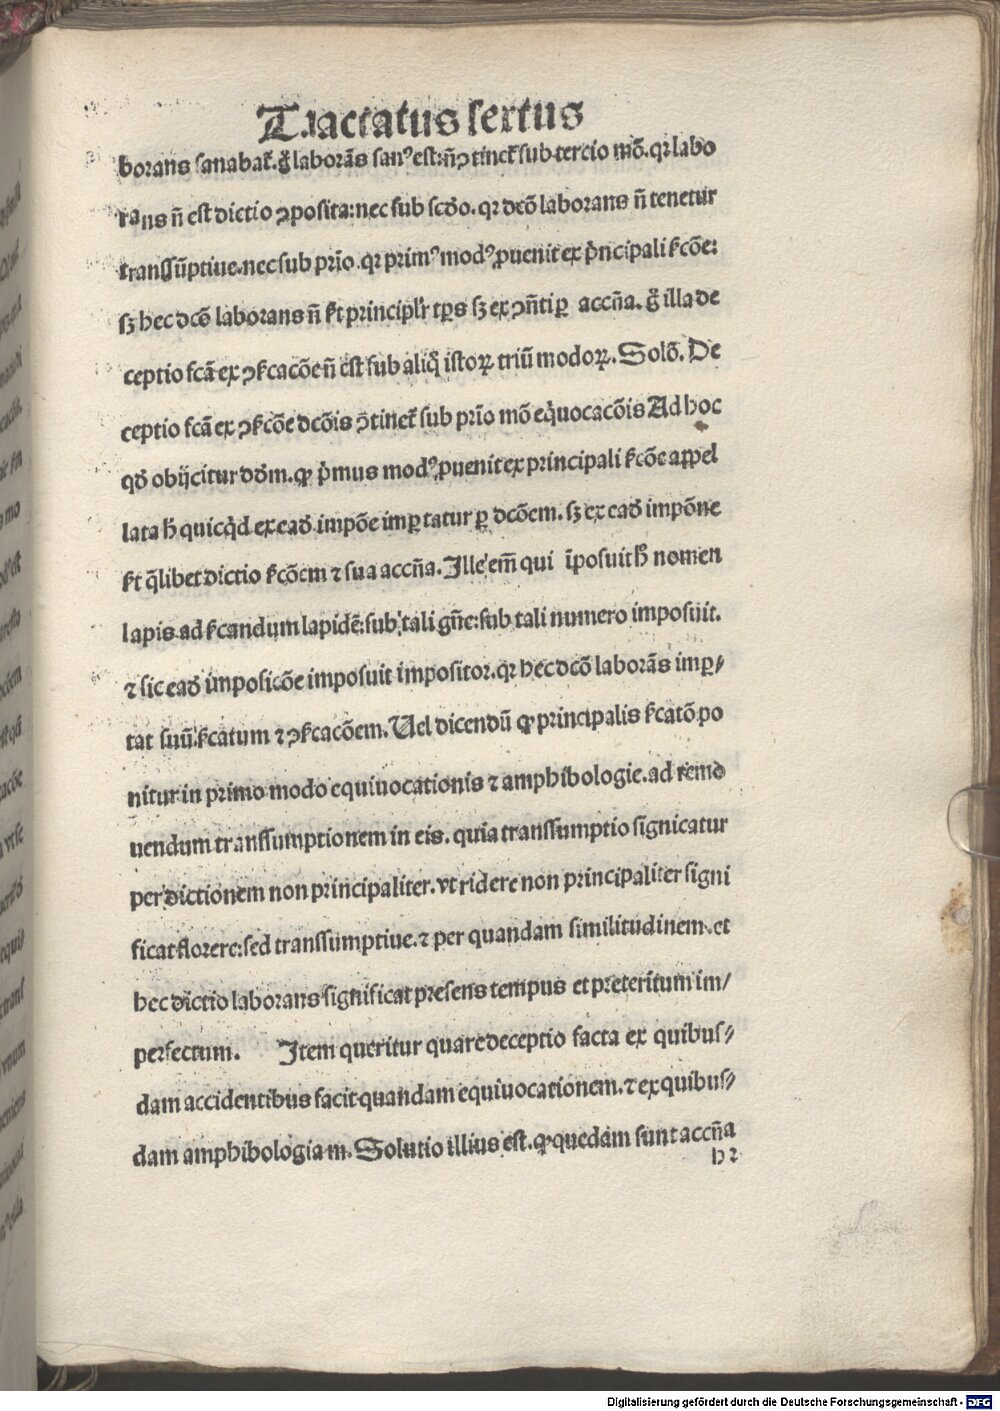 Tractatus sextus
borans sanabat᷑. g̊ laborãs sanꝰ est: ñ ↄtinet᷑ sub tercio mõ. qꝛ labo
rans ñ est dictio ↄposita: nec sub scd̃o. qꝛ dcõ laborans ñ tenetur
transsũptiue. nec sub prĩo. qꝛ primꝰ modꝰ ꝓuenit ex p̃ncipali s̃cõe:
sꝫ hec dcõ laborans ñ s̃t principl'r tp̃s sꝫ ex ↄñti ꝑ accña. g̊ illa de
ceptio fcã ex ↄs̃cacõe ñ est sub aliq̃ istoꝝ triũ modoꝝ. Solõ. De
ceptio fcã ex ↄs̃cõe dcõis ↄtinet᷑ sub prĩo mõ eq̃uocacõis Ad hoc
qd̃ obijcitur dd̃m. ꝙ p̃mus modꝰ ꝓuenit ex principali s̃cõe appel
lata h̃ quicq̃d ex ead̃ impõe imꝑtatur ꝑ dcõem. sꝫ ex ead̃ impõne
s̃t q̃libet dictio s̃cõem ⁊ sua accña. Ille em̃ qui ĩposuit h̃ nomen
lapis ad s̃candum lapidẽ: sub tali gñe: sub tali numero imposuit.
⁊ sic ead̃ imposicõe imposuit impositor. qꝛ hec dcõ laborãs imꝑ⸗
tat suũ s̃catum ⁊ ↄs̃cacõem. Uel dicendũ ꝙ principalis s̃catõ po
nitur in primo modo equiuocationis ⁊ amphibologie. ad remo
uendum transsumptionem in eis. quia transsumptio signicatur
per dictionem non principaliter. vt ridere non principaliter signi
ficat florere: sed transsumptiue. ⁊ per quandam similitudinem. et
hec dictio laborans significat presens tempus et preteritum im⸗
perfectum. Item queritur quare deceptio facta ex quibus⸗
dam accidentibus facit quandam equiuocationem. ⁊ ex quibus⸗
dam amphibologiam. Solutio illius est. ꝙ quedam sunt accña
h 2
Digitalisierung gefördert durch die Deutsche Forschungsgemeinschaft - DFG